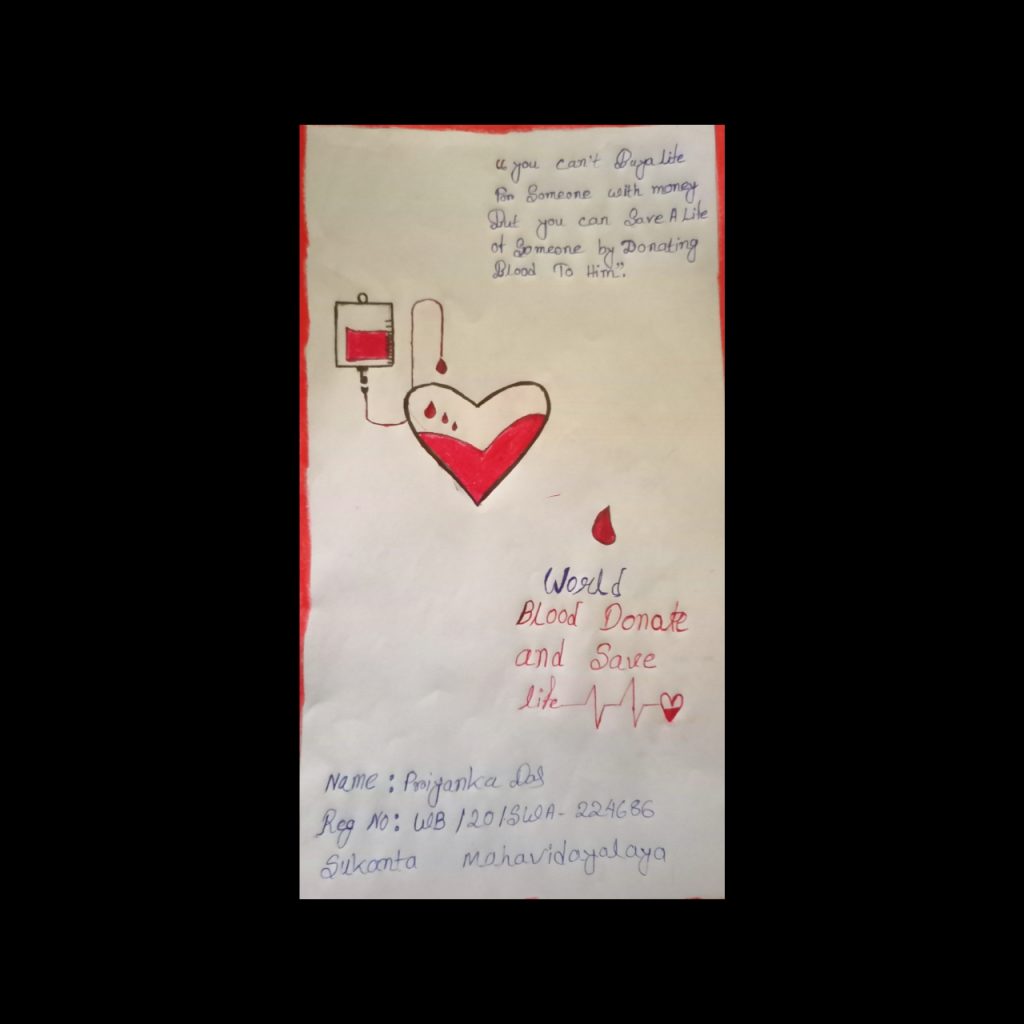 “you can't Buy a Life
For Someone with money
But you can Save A Life
of Someone by Donating
Blood To Him”.
World
Blood Donate
and Save
life
Name : Priyanka Das
Reg No: WB/20/SWA-224686
Sukanta Mahavidayalaya